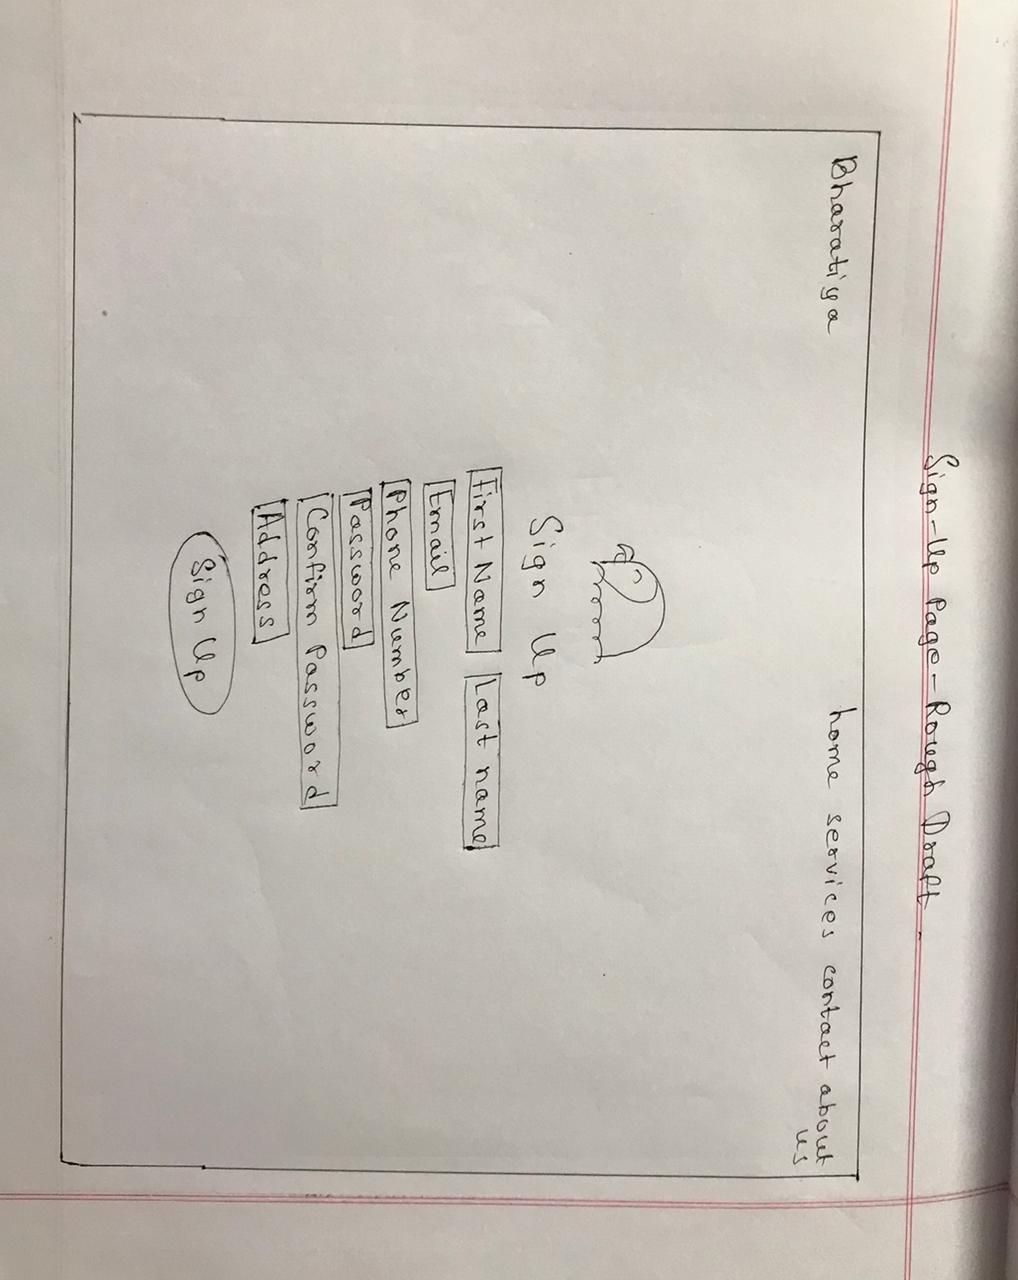 Sign-Up Page-Rough Draft.
Bharatiya home services contact about us
Sign Up
First Name Last name
Email
Phone Number
Password
Confirm Password
Address
Sign Up